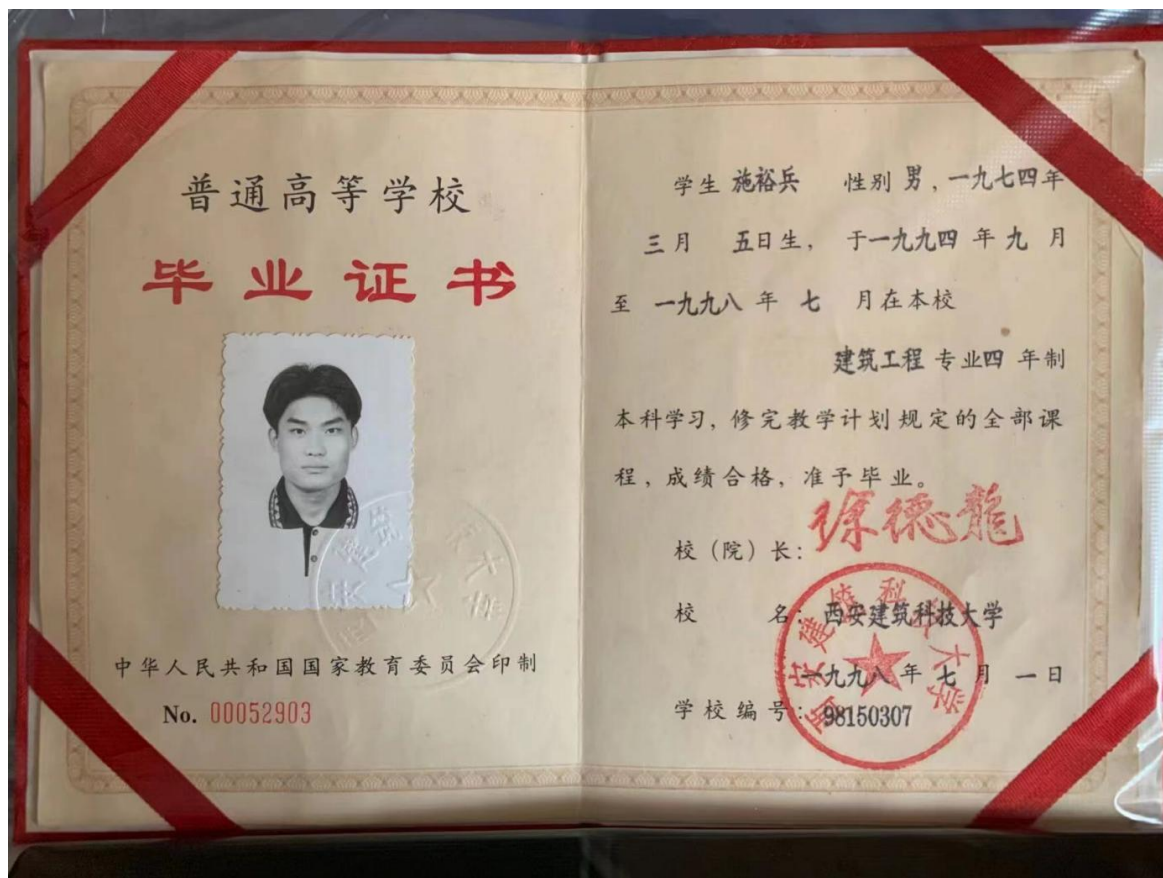 普通高等学校
毕业证书
中华人民共和国国家教育委员会印制
No. 00052903
学生 施裕兵 性别 男，一九七四年
三月 五日生，于一九九四年九月
至 一九九八年 七 月在本校
建筑工程 专业四 年制
本科学习，修完教学计划规定的全部课
程，成绩合格，准予毕业。
校（院）长：徐德龍
校 名：西安建筑科技大学
一九九八年 七 月 一日
学校编号：98150307
西安建筑科技大学